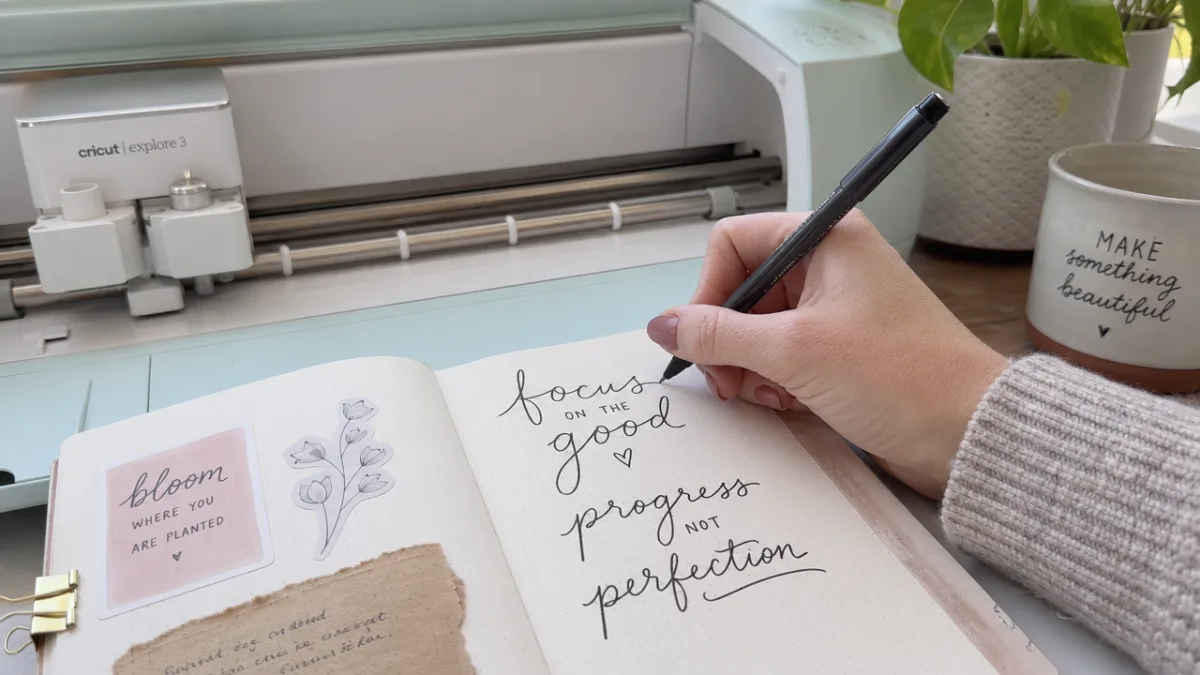 cricut | explore 3
MAKE
something
beautiful
bloom
WHERE YOU
ARE PLANTED
focus
ON THE
good
progress
NOT
perfection